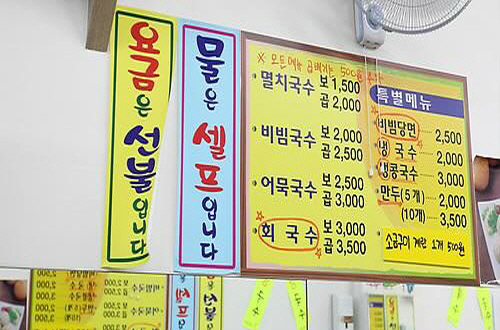 요금은 선불입니다
물은 셀프입니다
※ 모든메뉴 곱빼기는 500원 추가
멸치국수 보 1,500
곱 2,000
비빔국수 보 2,000
곱 2,500
어묵국수 보 2,500
곱 3,000
회국수 보 3,000
곱 3,500
특별메뉴
비빔당면 2,500
냉국수 2,000
냉콩국수 3,000
만두(5개) 2,000
(10개) 3,500
소금구이 계란 1개 500원